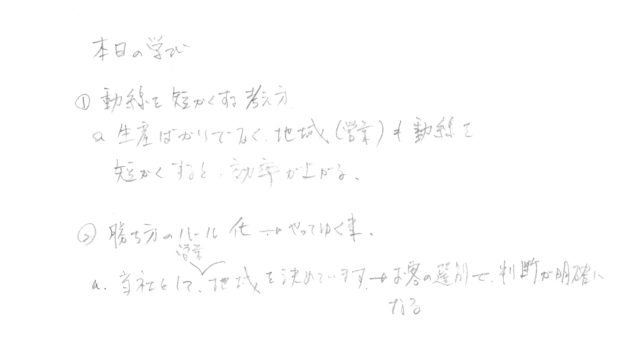 本日の学び
① 動線を短かくする考え方
a 生産ばかりでなく、地域(営業)も動線を
短かくすると、効率が上がる。
② 勝ち方のルール化→やってゆく事。
営業
a. 当社として、地域を決めています→お客の選別で、判断が明確に
なる